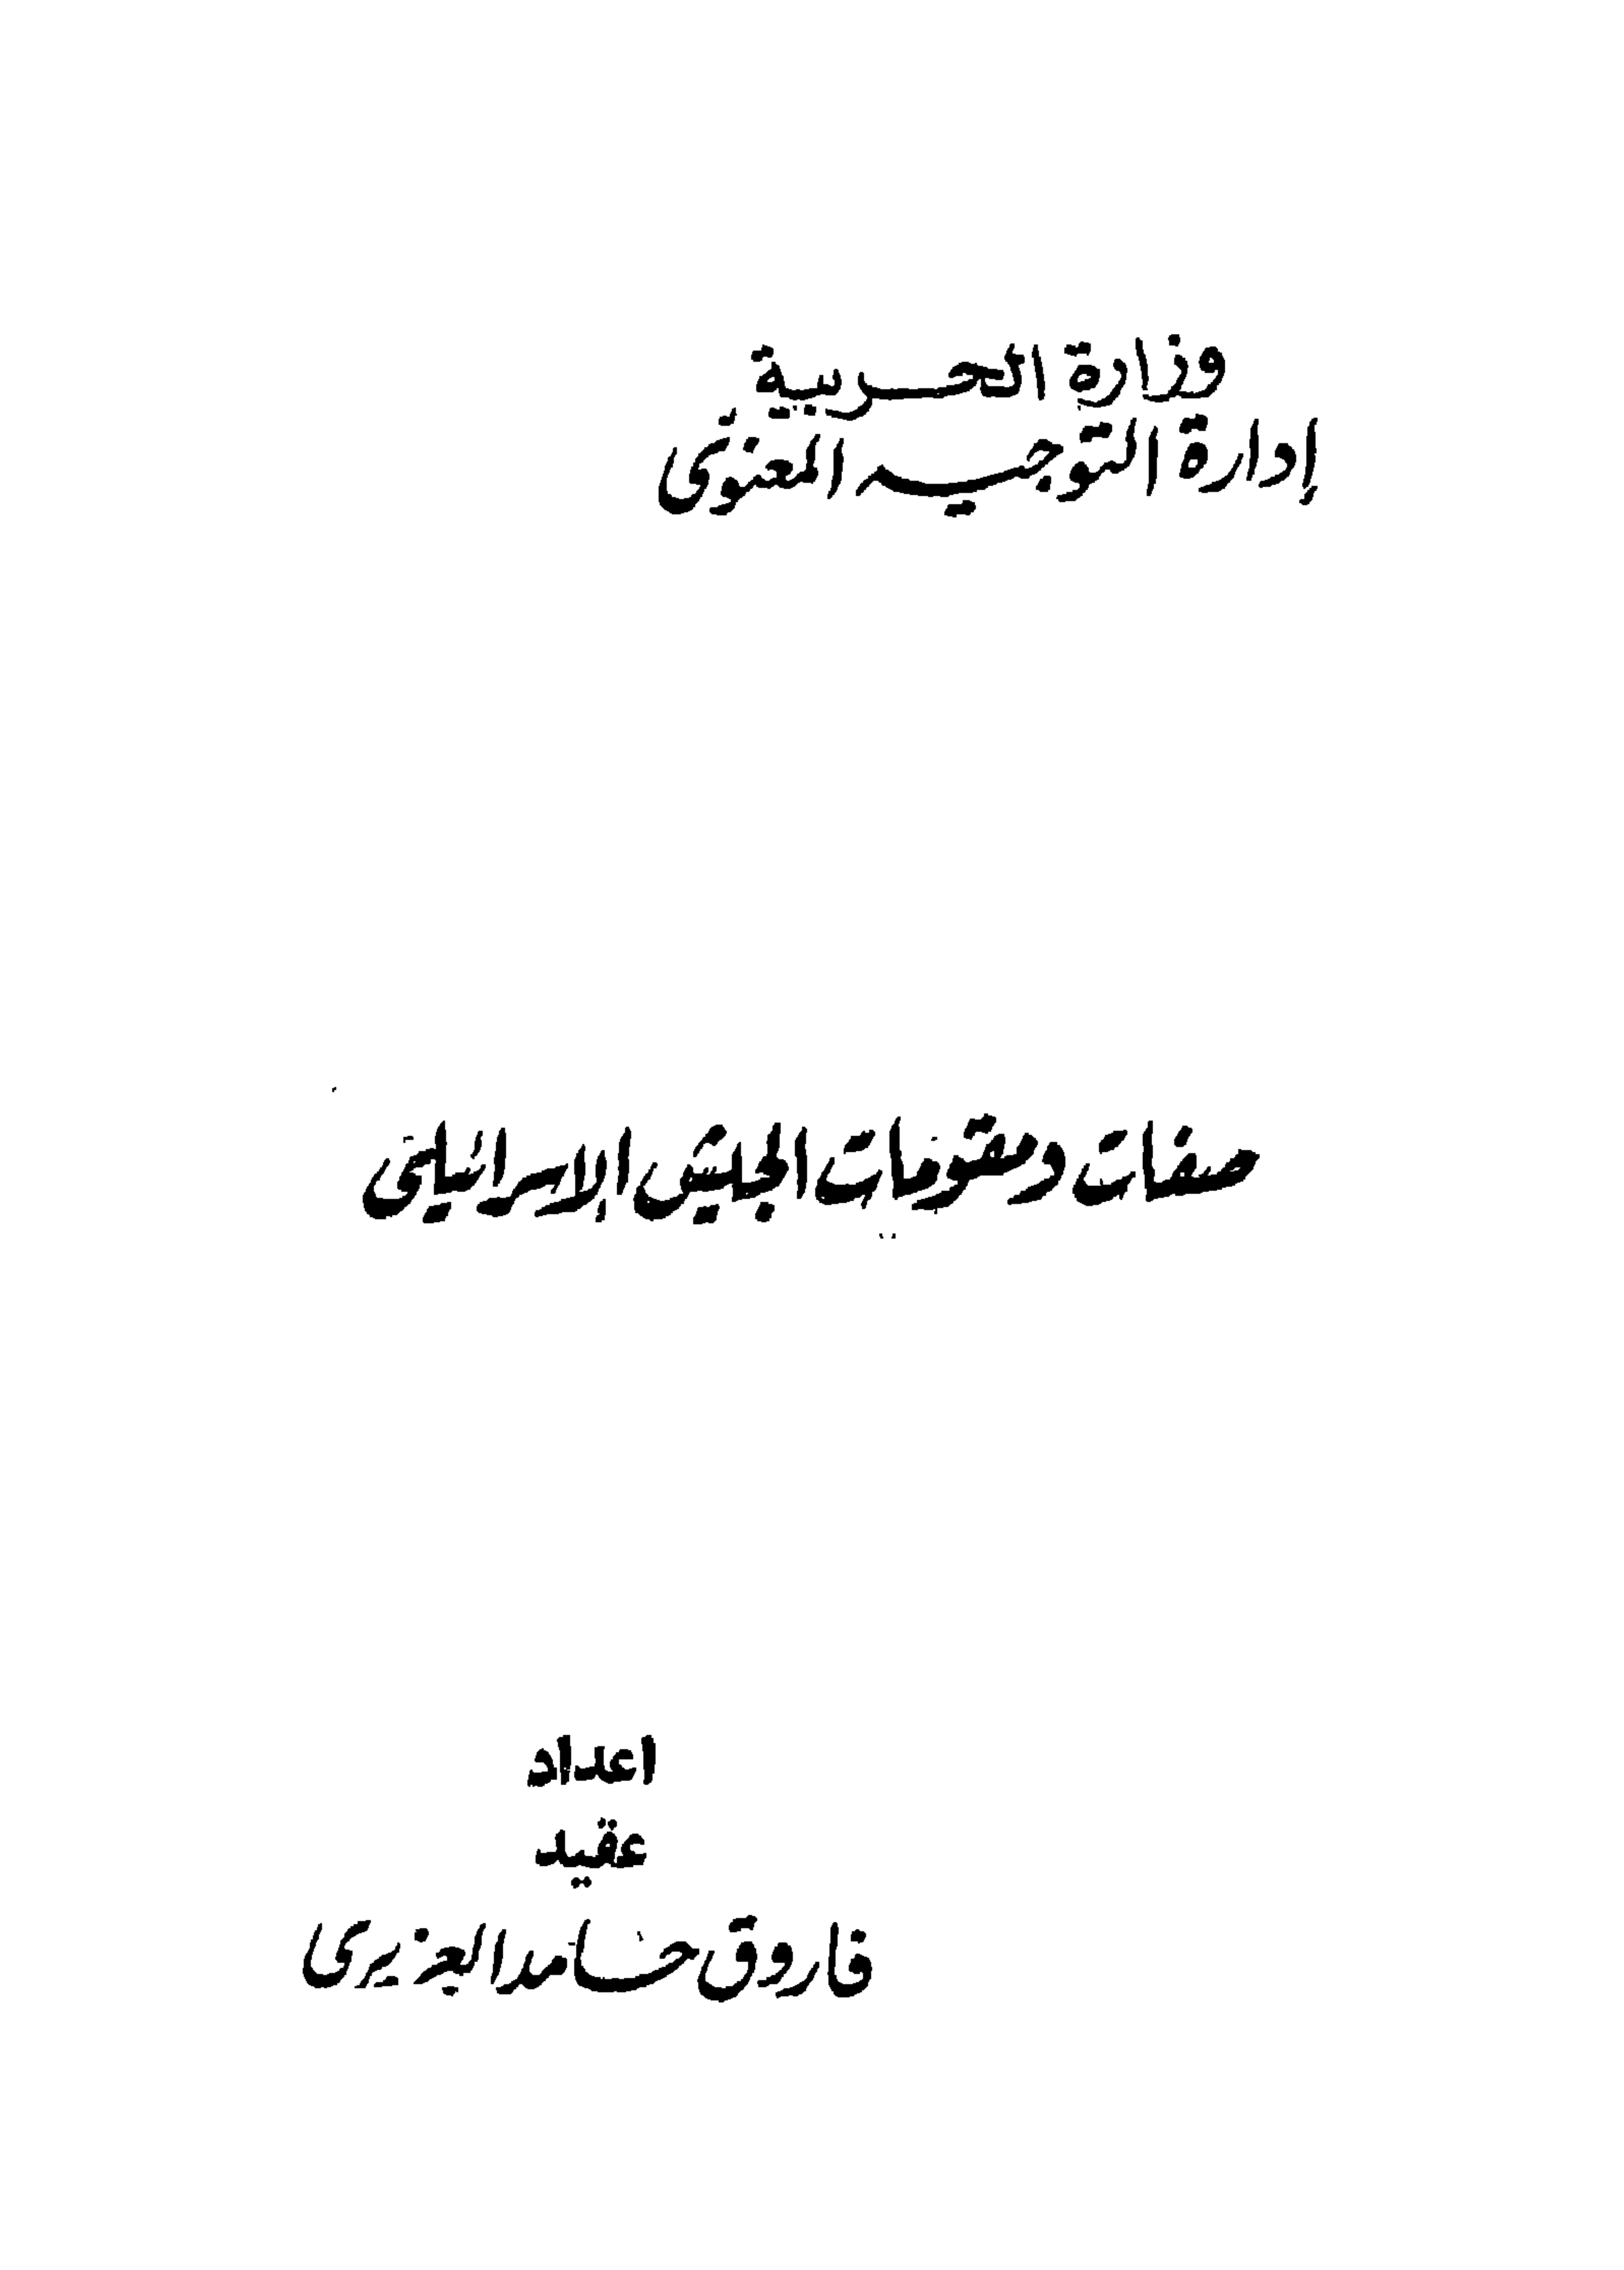 وزارة الحربية
إدارة التوجيه المعنوى
صفات ومقومات الجيش الإسرائيلى
اعداد
عقيد
فاروق حامد العزيرى